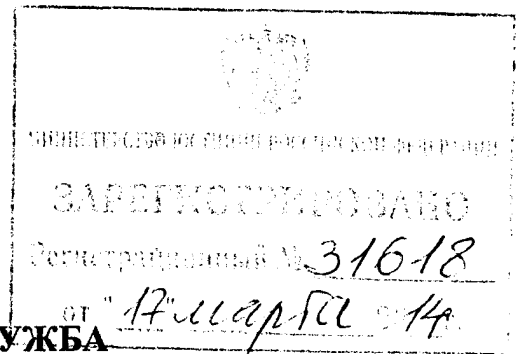 МИНИСТЕРСТВО ЮСТИЦИИ РОССИЙСКОЙ ФЕДЕРАЦИИ
ЗАРЕГИСТРИРОВАНО
Регистрационный № 31618
от "17" марта 2014
УЖБА